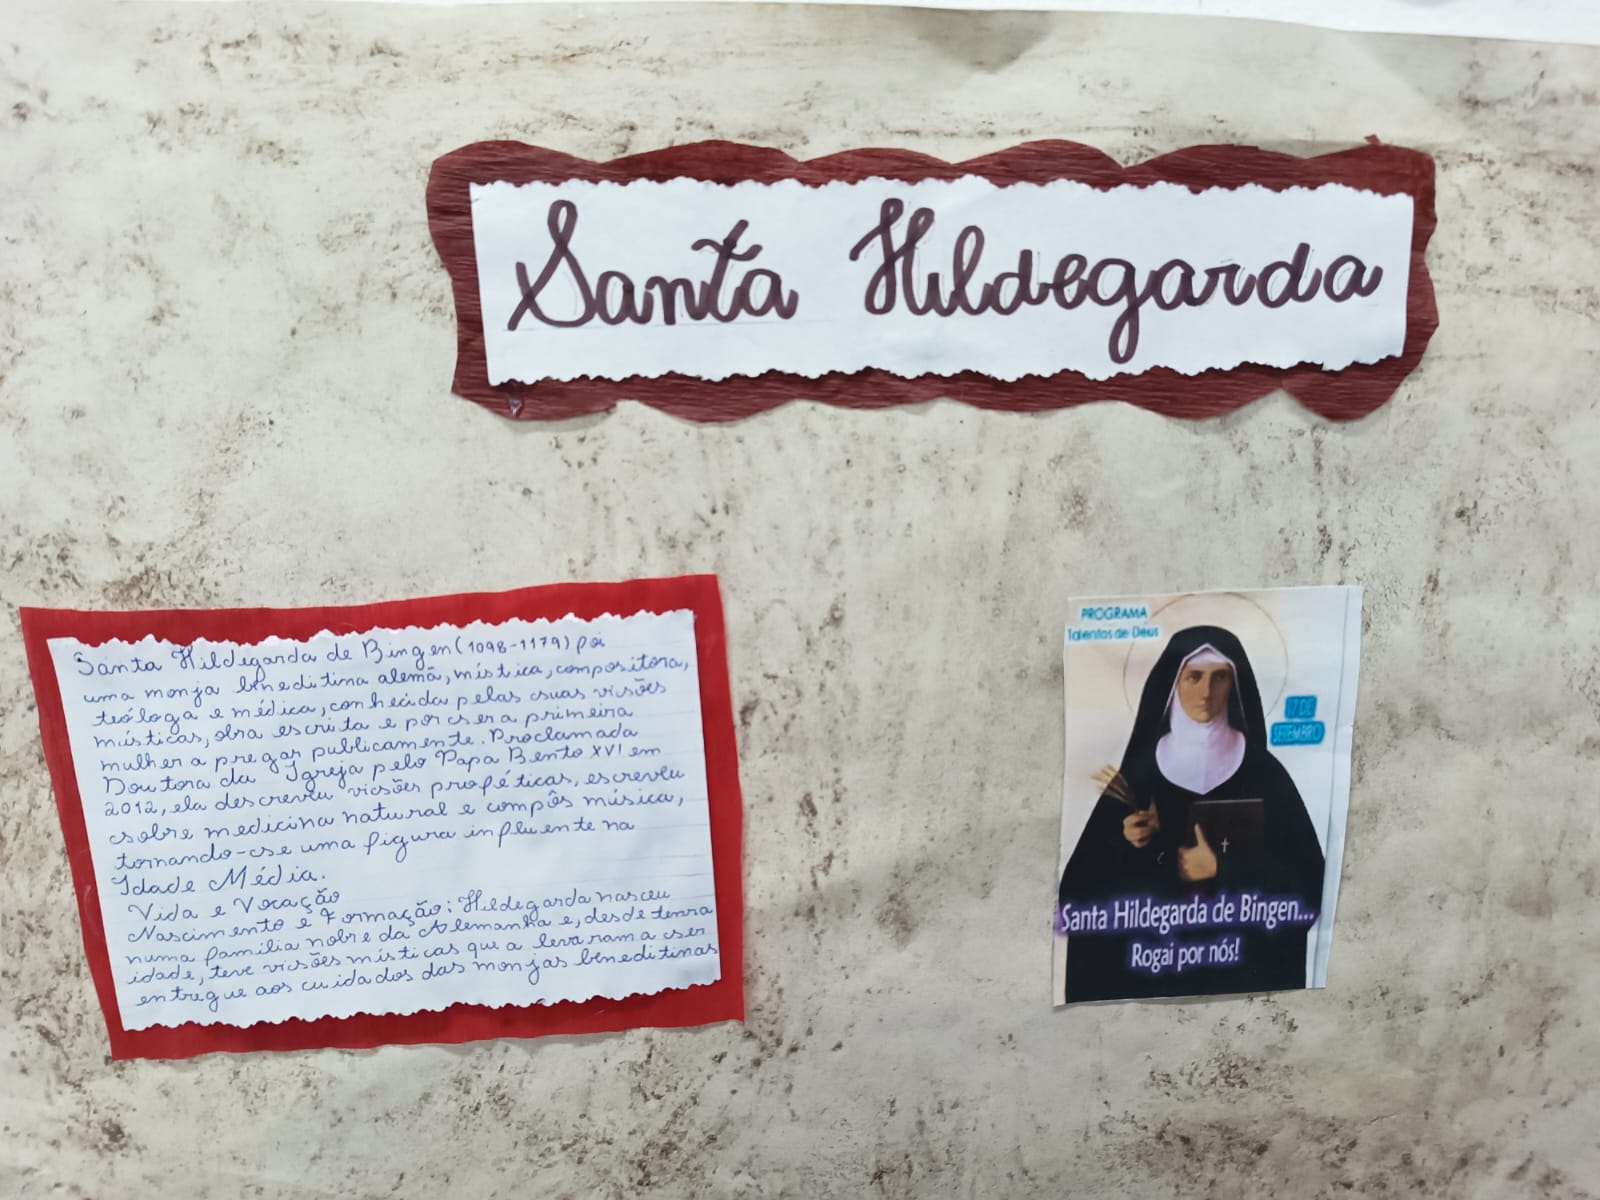 Santa Hildegarda
Santa Hildegarda de Bingen (1098-1179) foi
uma monja beneditina alemã, mística, compositora,
teóloga e médica, conhecida pelas suas visões
místicas, obra escrita e por ser a primeira
mulher a pregar publicamente. Proclamada
Doutora da Igreja pelo Papa Bento XVI em
2012, ela descreveu visões proféticas, escreveu
sobre medicina natural e compôs música,
tornando-se uma figura influente na
Idade Média.
Vida e Vocação
Nascimento e Formação: Hildegarda nasceu
numa família nobre da Alemanha e, desde tenra
idade, teve visões místicas que a levaram a ser
entregue aos cuidados das monjas beneditinas
PROGRAMA
Talentos de Deus
17 DE
SETEMBRO
Santa Hildegarda de Bingen...
Rogai por nós!